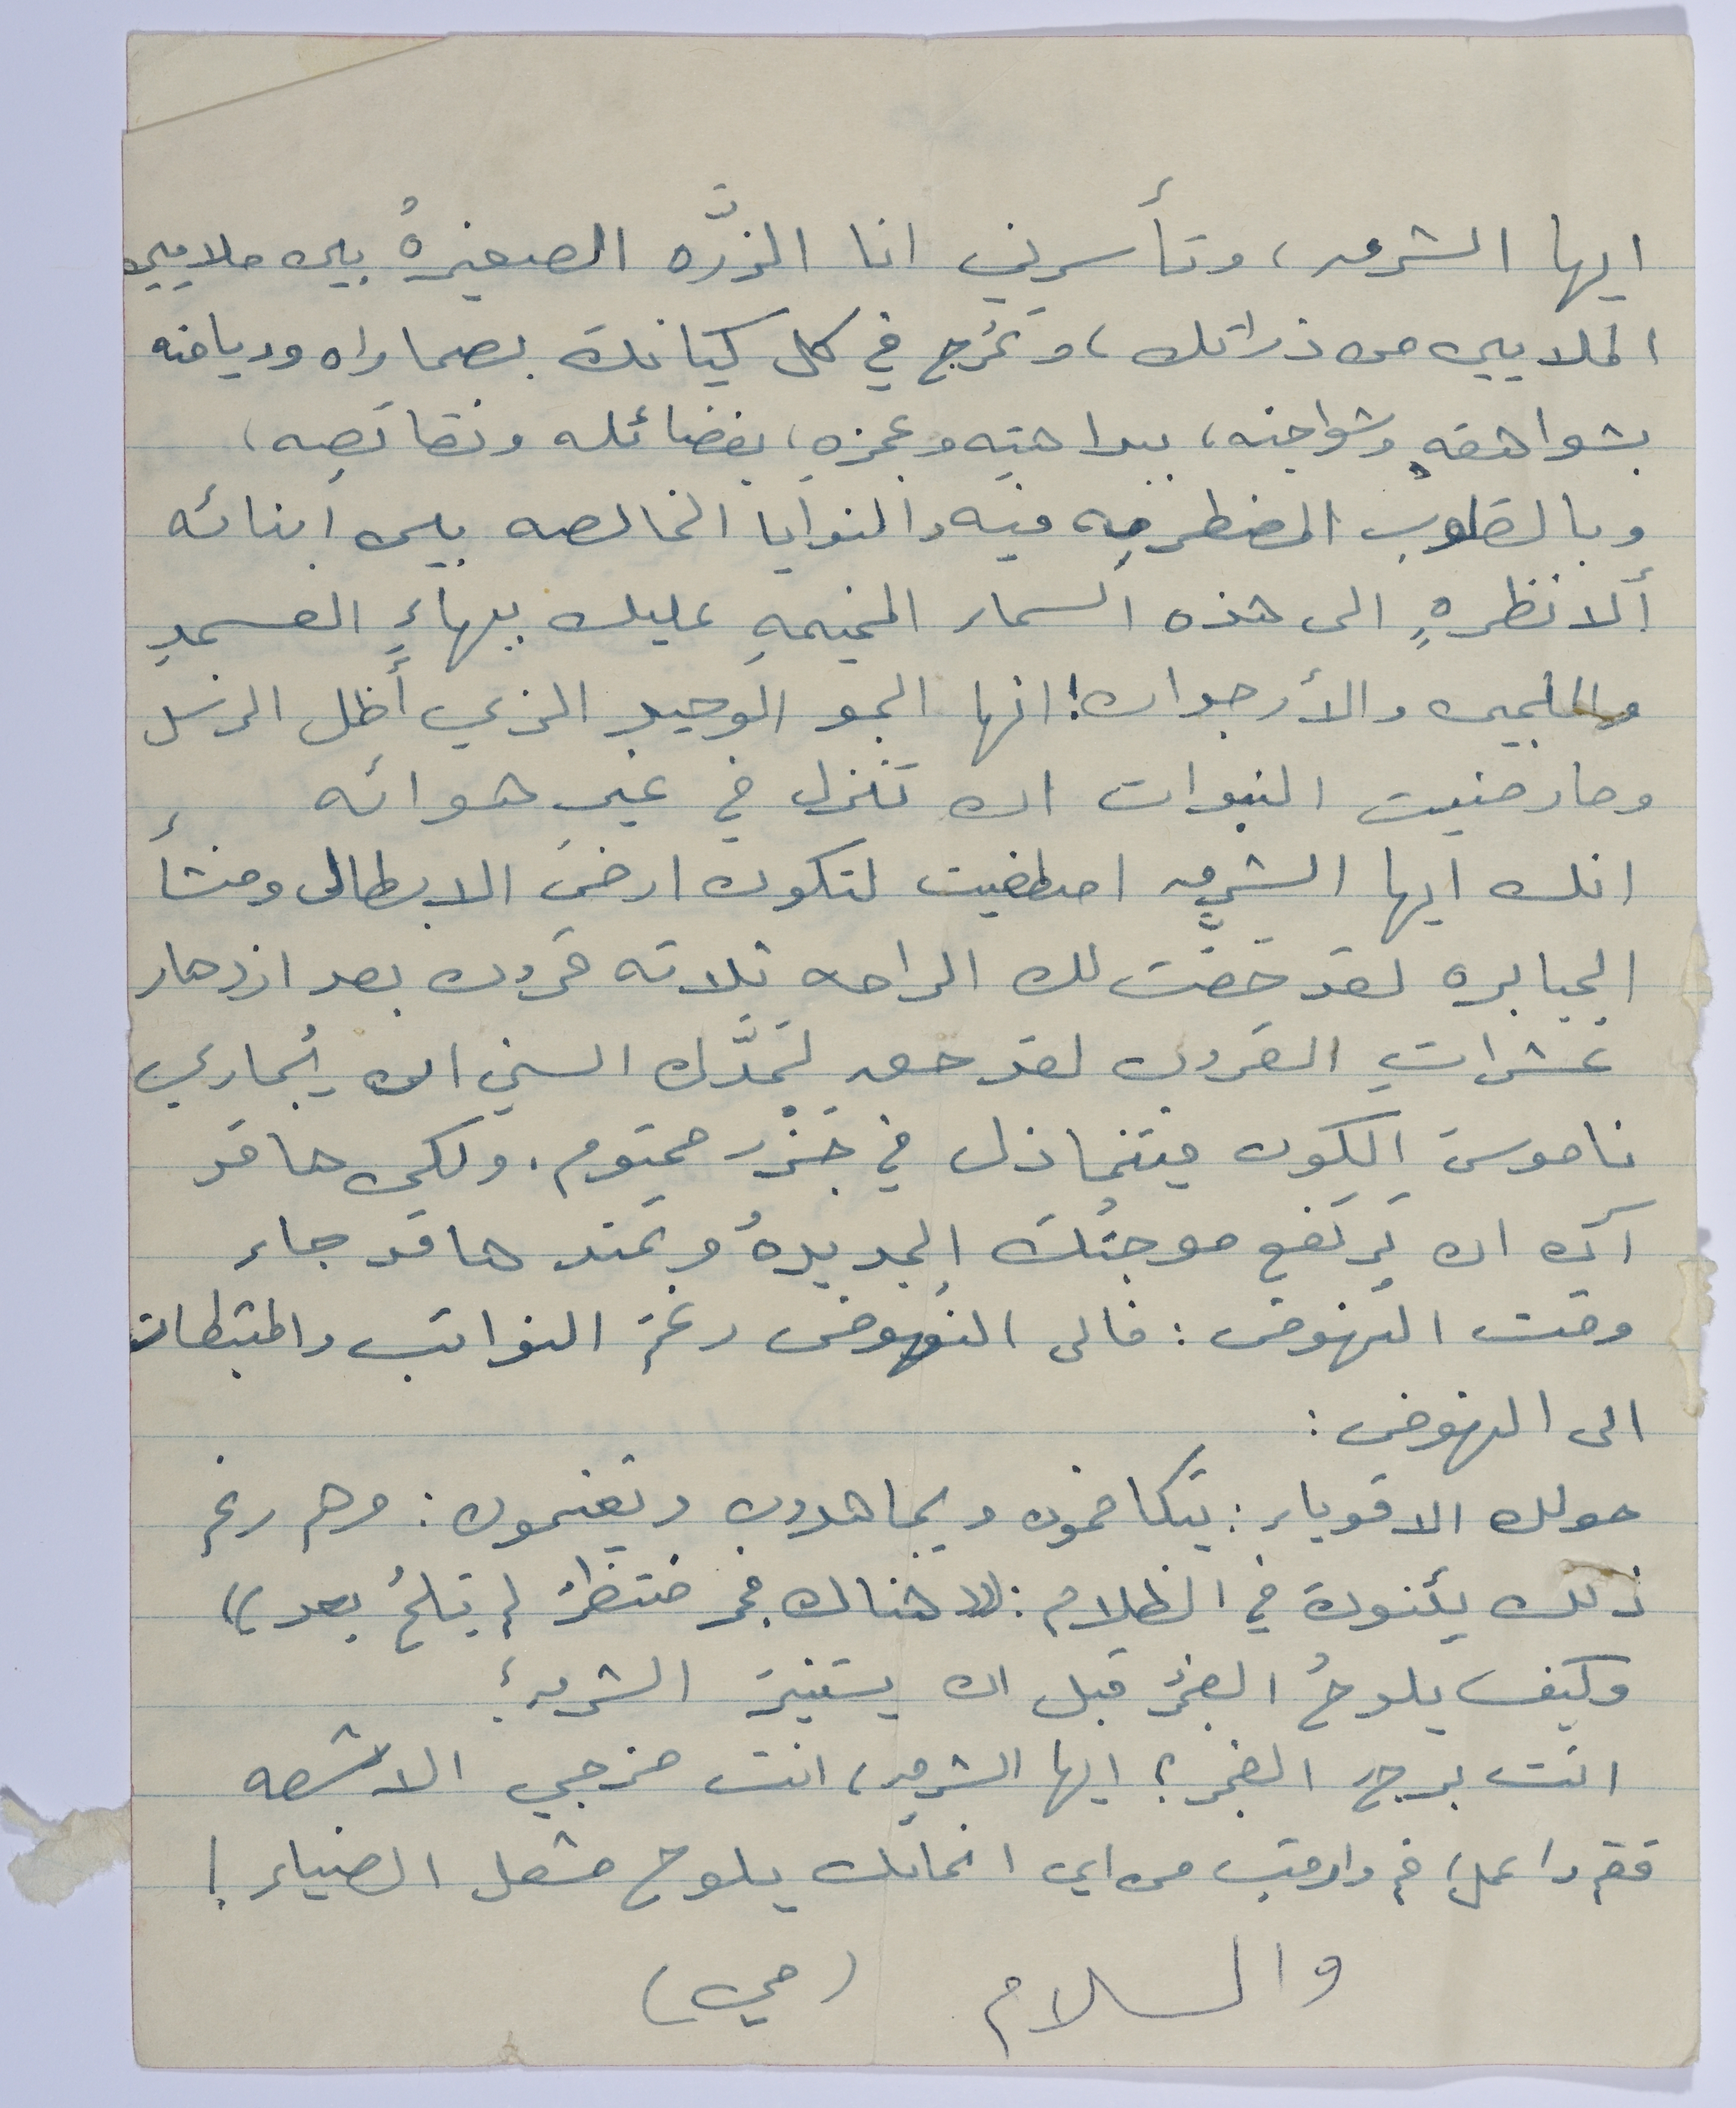 ايها الشرق، وتأسرني انا الذرَّه الصغيرهُ بين ملايين
الملايين من ذراتك، وتمزج في كل كيانك بصحاراه ورياضه
بشواهقهِ وشواجنه، ببداهتهِ وعجزهِ، بفضائله ونقائصِه،
وبالقلوبِ المضطرمهِ فيه والنوايا الخالصه بين ابنائه
ألا نظرهٍ الى هذه السماء المخيمهِ عليك ببهاءِ العسجدِ
واللجين والأرجوان! انها الجو الوحيد الذي أظل الرسل
وما رضيت النبوات ان تنزل في غير هوائه
انك ايها الشرق اصطفيت لتكون ارضَ الابطال ومنشأ
الجبابره لقد حَقت لك الراحه ثلاثه قرون بعد ازدهار
عشراتِ القرون لقد حق لتمَدَّنك السني ان يُجاري
ناموسَ الكون فيتخاذل في جَزْر محتوم. ولكن ها قد
آن ان تَرتفع موجتُك الجديدهُ وتمتد ها قد جاء
وقت النهوض: فالى النهوض رغم النوائب والمثبطات
الى النهوض:
حولك الاقوياء: يتكافحون ويجاهدون ويغنمون: وهم رغم
ذلك يئنون في الظلام: ((هناك فجر منتظرٌ لم يَلحْ بعد))
وكيف يلوحُ الفجرُ قبل ان يستنيرَ الشرق؟
انت برج الفجر؟ ايها الشرق، انت مزجي الاشعه
فقم واعمل، قم وارقب من اي انحائك يلوح مشعل الضياء!
والسلام (مي)